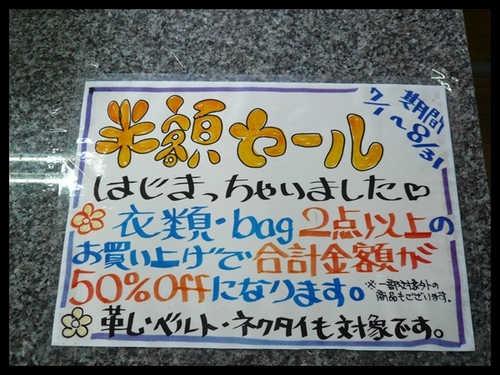 期間
7/1~8/31
半額セール
はじまっちゃいました♡
衣類・bag 2点以上の
お買い上げで合計金額が
50%Offになります。
※一部対象外の
商品もございます。
革しベルト・ネクタイも対象です。